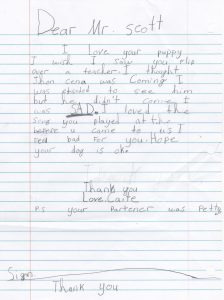 Dear Mr. Scott
I love your puppy
I wish I saw you flip
over a teacher. I thought
Jhon cena was coming I
was exited to see him
but he didn't come I
was SAD. I love the
song you played at the
before u came to us I
feel bad for you. Hope
your dog is ok.
Thank you
Love, Caite
P.S your Partener was Petty
Sign
Thank you